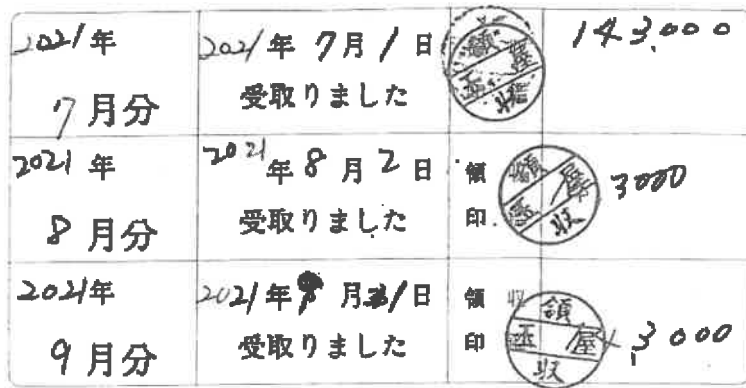 2021年
7月分
2021年7月1日
受取りました
143,000
2021年
8月分
2021年8月2日
受取りました
領
印
領
屋
収
3000
2021年
9月分
2021年 月 1日
受取りました
領
収
印
領
玉 屋
収
3000